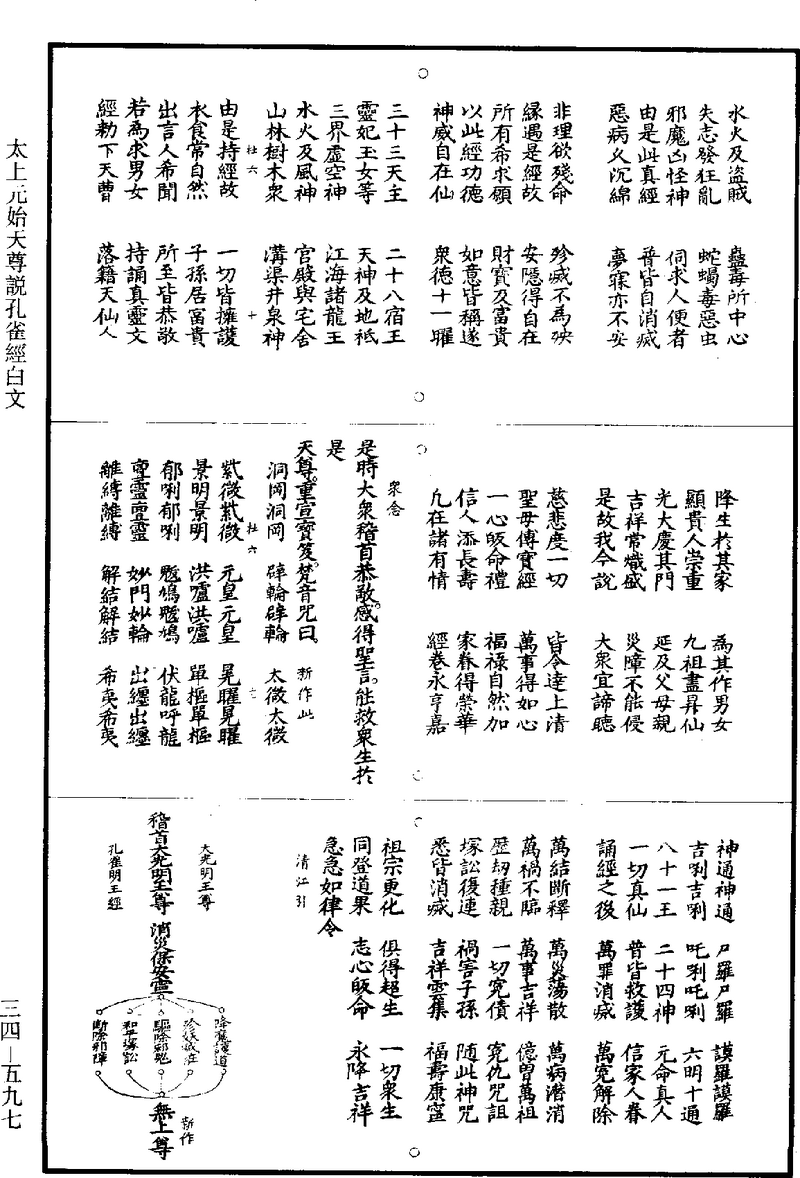 太上元始天尊説孔雀經白文
三四—五九七
水火及盜賊　蠱毒所中心
失志發狂亂　蛇蝎毒惡虫
邪魔凶怪神　伺求人便者
由是此真經　普皆自消滅
惡病久沉綿　夢寐亦不安
非理欲殘命　殄滅不為殃
緣遇是經故　安隱得自在
所有希求願　財寶及富貴
以此經功德　如意皆稱遂
神威自在仙　衆德十一曜
三十三天主　二十八宿王
靈妃玉女等　天神及地祇
三界虛空神　江海諸龍王
水火及風神　宮殿與宅舍
山林樹木衆　溝渠井泉神
杜六　十
由是持經故　一切皆擁護
衣食常自然　子孫居富貴
出言人希聞　所至皆恭敬
若為求男女　持誦真靈文
經勑下天曹　落籍天仙人
降生於其家　為其作男女
顯貴人崇重　九祖盡昇仙
光大慶其門　延及父母親
吉祥常熾盛　災障不能侵
是故我今説　大衆宜諦聽
慈悲度一切　皆令達上清
聖母傳寶經　萬事得如心
一心皈命禮　福祿自然加
信人添長壽　家眷得榮華
凢在諸有情　經卷永亨嘉
衆念
是時大衆稽首恭敬感得聖言能救衆生於
是
天尊重宣寶笈梵音咒曰　新作此
洞罔洞罔　辟輪辟輪　太微太微
杜六　十二
紫微紫微　元皇元皇　晃曜晃曜
景明景明　洪嚧洪嚧　單樞單樞
郁唎郁唎　魃鳩魃鳩　伏龍呼龍
亶靈亶靈　妙門妙輪　出纏出纏
離縛離縛　解結解結　希夷希夷
神通神通　尸羅尸羅　謨羅謨羅
吉唎吉唎　吒唎吒唎　六明十通
八十一王　二十四神　元命真人
一切真仙　普皆救護　信家人眷
誦經之後　萬罪消滅　萬冤解除
萬結斷釋　萬災蕩散　萬病潛消
萬禍不臨　萬事吉祥　億曽萬祖
歷刼種親　一切冤債　冤仇咒詛
塚訟復連　禍害子孫　隨此神咒
悉皆消滅　吉祥雲集　福壽康寧
祖宗更化　俱得超生　一切衆生
同登道果　志心皈命　永降吉祥
急急如律令
清江引
大光明王尊
稽首大光明王尊　消災保安寧
孔雀明王經
降魔護道
殄妖滅症
驅除邪魁
和平塚訟
斷除邪障
新作
無上尊